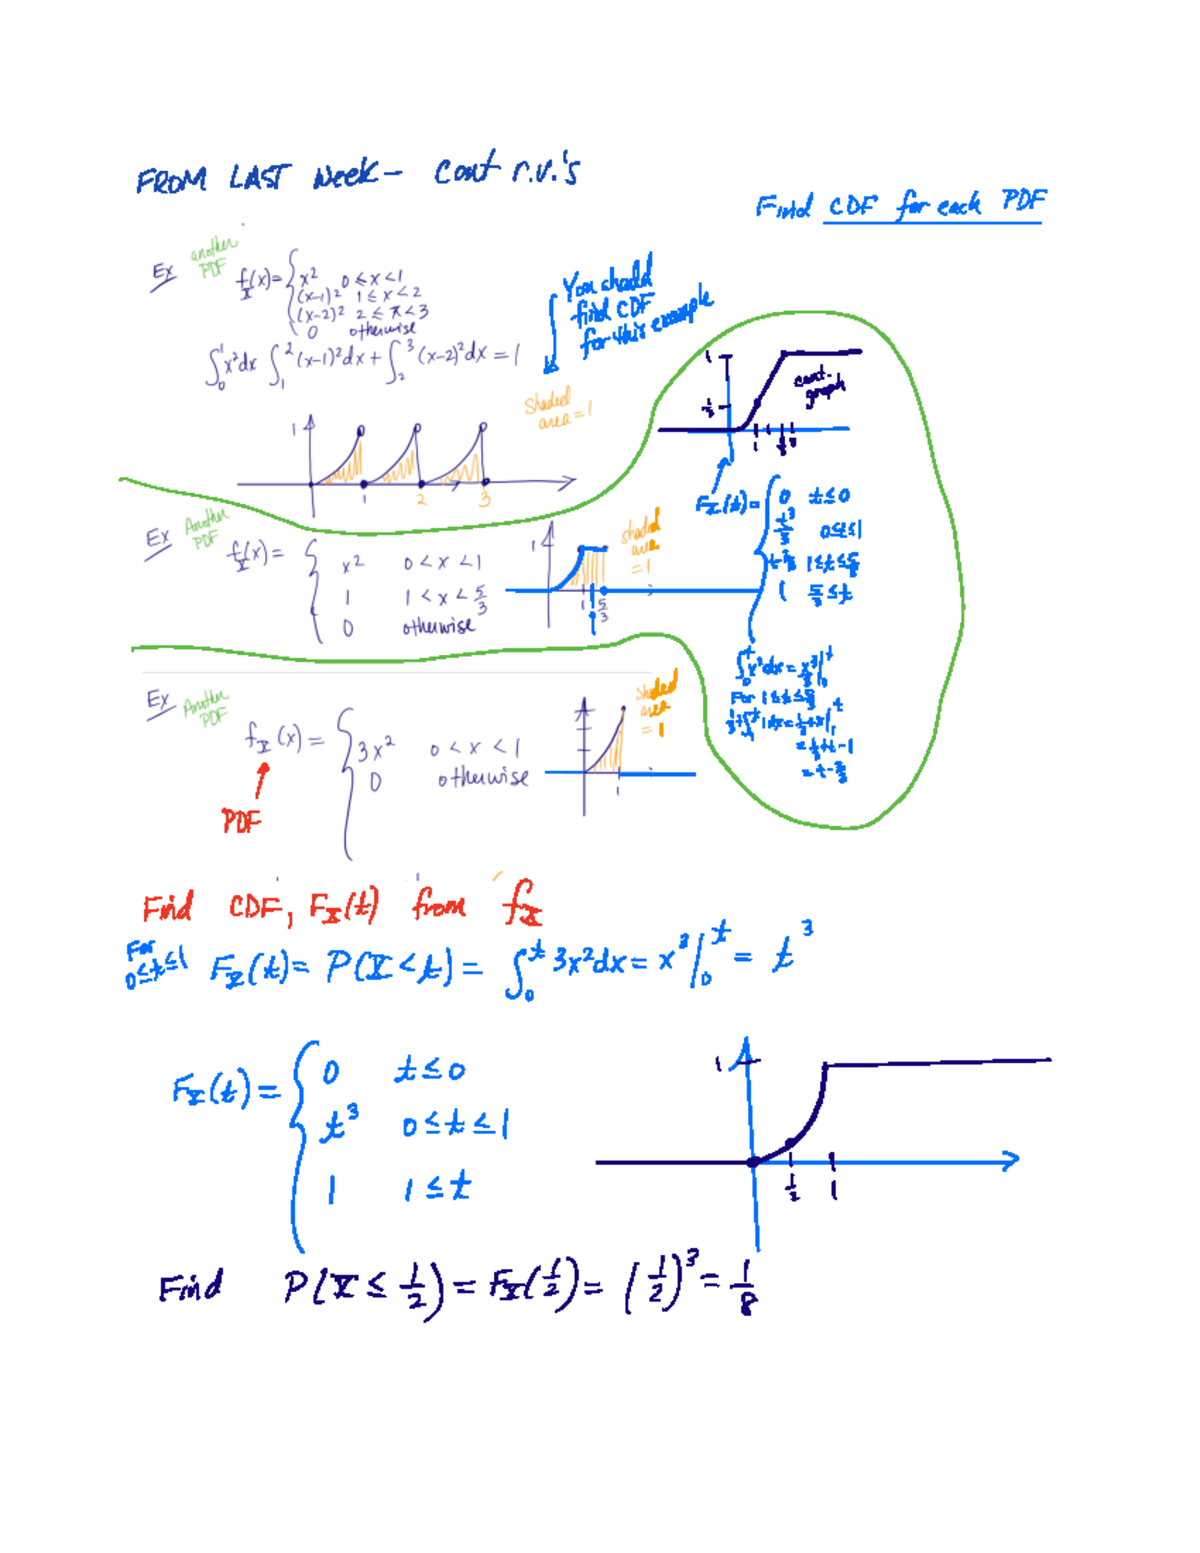 FROM LAST Week – Cont r.v.'s
Find CDF for each PDF
Ex another PDF
f_X(x) = { x² 0 ≤ x < 1
(x-1)² 1 ≤ x < 2
(x-2)² 2 ≤ x < 3
0 otherwise
∫₀¹ x²dx ∫₁² (x-1)²dx + ∫₂³ (x-2)²dx = 1
You should
find CDF
for this example
shaded
area = 1
1
1 2 3
1
1/3
cont.
graph
1 5/3
Ex Another PDF
f_X(x) = { x² 0 < x < 1
1 1 < x < 5/3
0 otherwise
1
1 5/3
shaded
area
= 1
F_X(t) = { 0 t ≤ 0
t³/3 0 ≤ t ≤ 1
t - 2/3 1 ≤ t ≤ 5/3
1 5/3 ≤ t
∫₀ᵗ x²dx = x³/3 |₀ᵗ
For 1 ≤ t ≤ 5/3
1/3 + ∫₁ᵗ 1dx = 1/3 + x |₁ᵗ
= 1/3 + t - 1
= t - 2/3
Ex Another PDF
f_X(x) = { 3x² 0 < x < 1
0 otherwise
PDF
1
shaded
area
= 1
Find CDF, F_X(t) from f_X
For
0 ≤ t ≤ 1 F_X(t) = P(X < t) = ∫₀ᵗ 3x²dx = x³ |₀ᵗ = t³
F_X(t) = { 0 t ≤ 0
t³ 0 ≤ t ≤ 1
1 1 ≤ t
1
1/2 1
Find P(X ≤ 1/2) = F_X(1/2) = (1/2)³ = 1/8